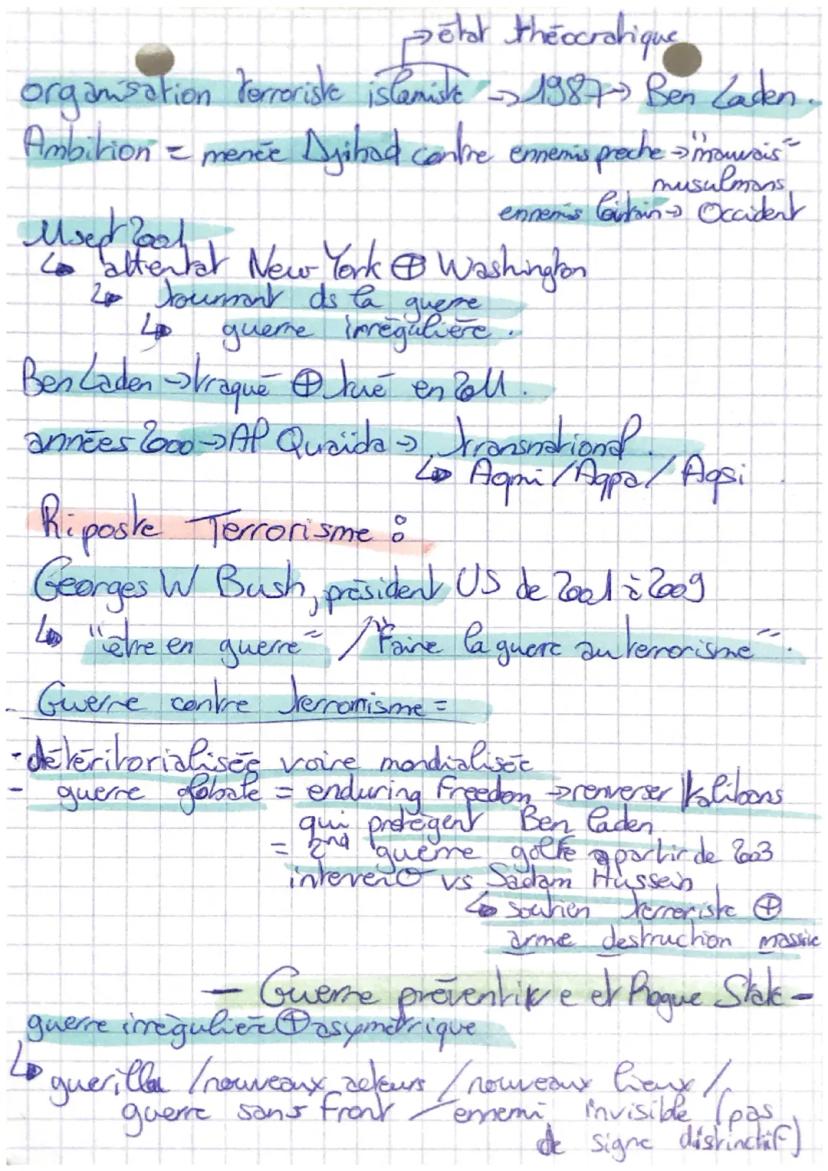 → état théocratique
organisation terroriste islamiste → 1987 → Ben Laden.
Ambition = menée Djihad contre ennemis proche → "mauvais"
musulmans
ennemis lointain → Occident
11 sept 2001
↳ attentat New-York ⊕ Washington
↳ tournant ds la guerre
↳ guerre irrégulière.
Ben Laden → traqué ⊕ tué en 2011.
années 2000 → Al Quaïda → transnational.
↳ Aqmi / Aqpa / Aqsi
Riposte Terrorisme :
Georges W Bush, président US de 2001 à 2009
↳ "être en guerre" / "Faire la guerre au terrorisme".
- Guerre contre terrorisme =
- détéritorialisée voire mondialisée
- guerre globale = enduring Freedom → renverser Talibans
qui protègent Ben Laden
= 2nd guerre golfe a partir de 2003
vs Sadam Hussein
↳ soutien terroriste ⊕
arme destruction massive
- Guerre préventive et Rogue State -
guerre irrégulière ⊕ asymétrique
↳ guerilla / nouveaux acteurs / nouveaux lieux /
guerre sans front / ennemi invisible (pas
de signe distinctif)